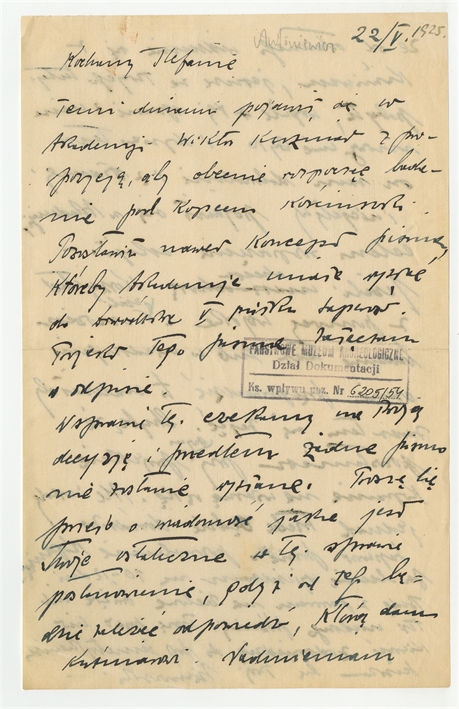 Antoniewicz
22/V. 1925.
Kochany Stefanie
Temi dniami pojawił się w
Akademji Wiktor Kuźniar z pro-
pozycją, aby obecnie rozpocząć bada-
nie pod Kopcem Kościuszki.
Pozostawił nawet koncept pisma,
któreby Akademja miała wysłać
do dowództwa V pułku saperów.
Treść tego pisma załączam
w odpisie.
W sprawie tej czekamy na Twoją
decyzję i przedtem żadne pismo
nie zostanie wysłane. Proszę Cię
przeto o wiadomość jakie jest
Twoje ostateczne w tej sprawie
postanowienie, gdyż od tego bę-
dzie zależeć odpowiedź, którą dam
Kuźniarowi. Nadmieniam
PAŃSTWOWE MUZEUM ARCHEOLOGICZNE
Dział Dokumentacji
Ks. wpływu poz. Nr 6205/54